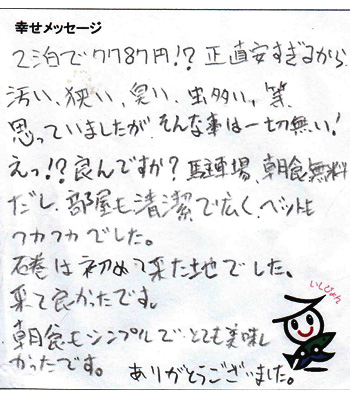 幸せメッセージ
2泊で7787円!? 正直安すぎるから
汚い、狭い、臭い、虫多い、等、
思っていましたが、そんな事は一切無い!
えっ!? 良んですか? 駐車場、朝食無料
だし、部屋も清潔で広く、ベットも
フカフカでした。
石巻は初めて来た地でした。
来て良かったです。
朝食もシンプルで、とても美味し
かったです。 ありがとうございました。
いしぴょん